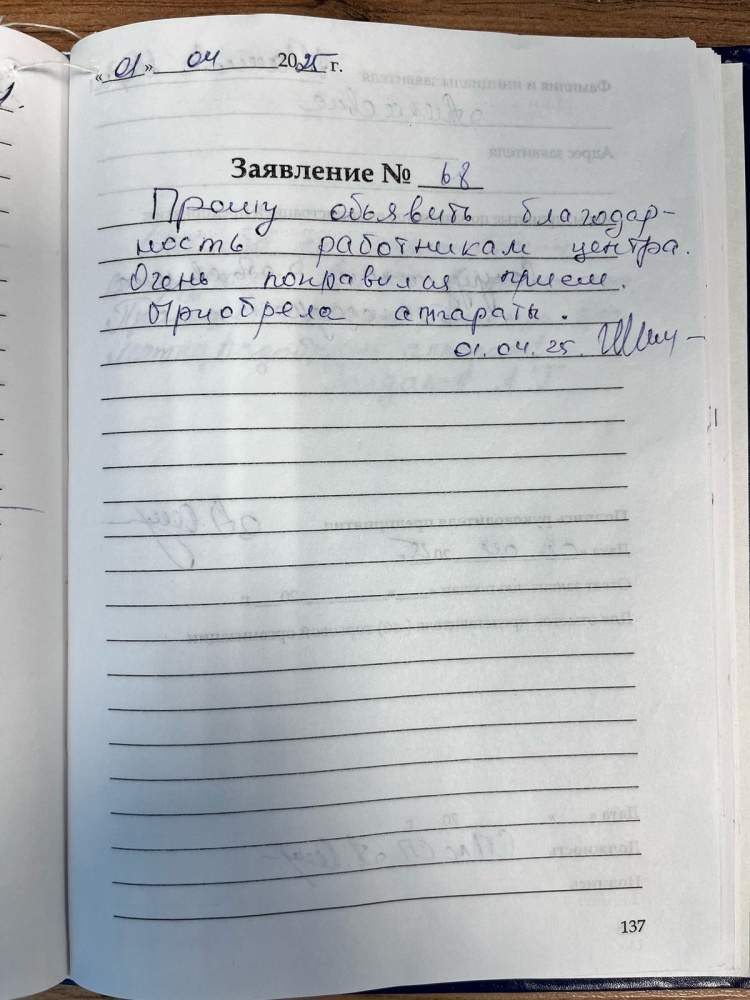 «01» 04 2025 г.
Заявление № 68
Прошу объявить благодар-
ность работникам центра.
Очень понравился прием.
Приобрела аппараты.
01.04.25.
137